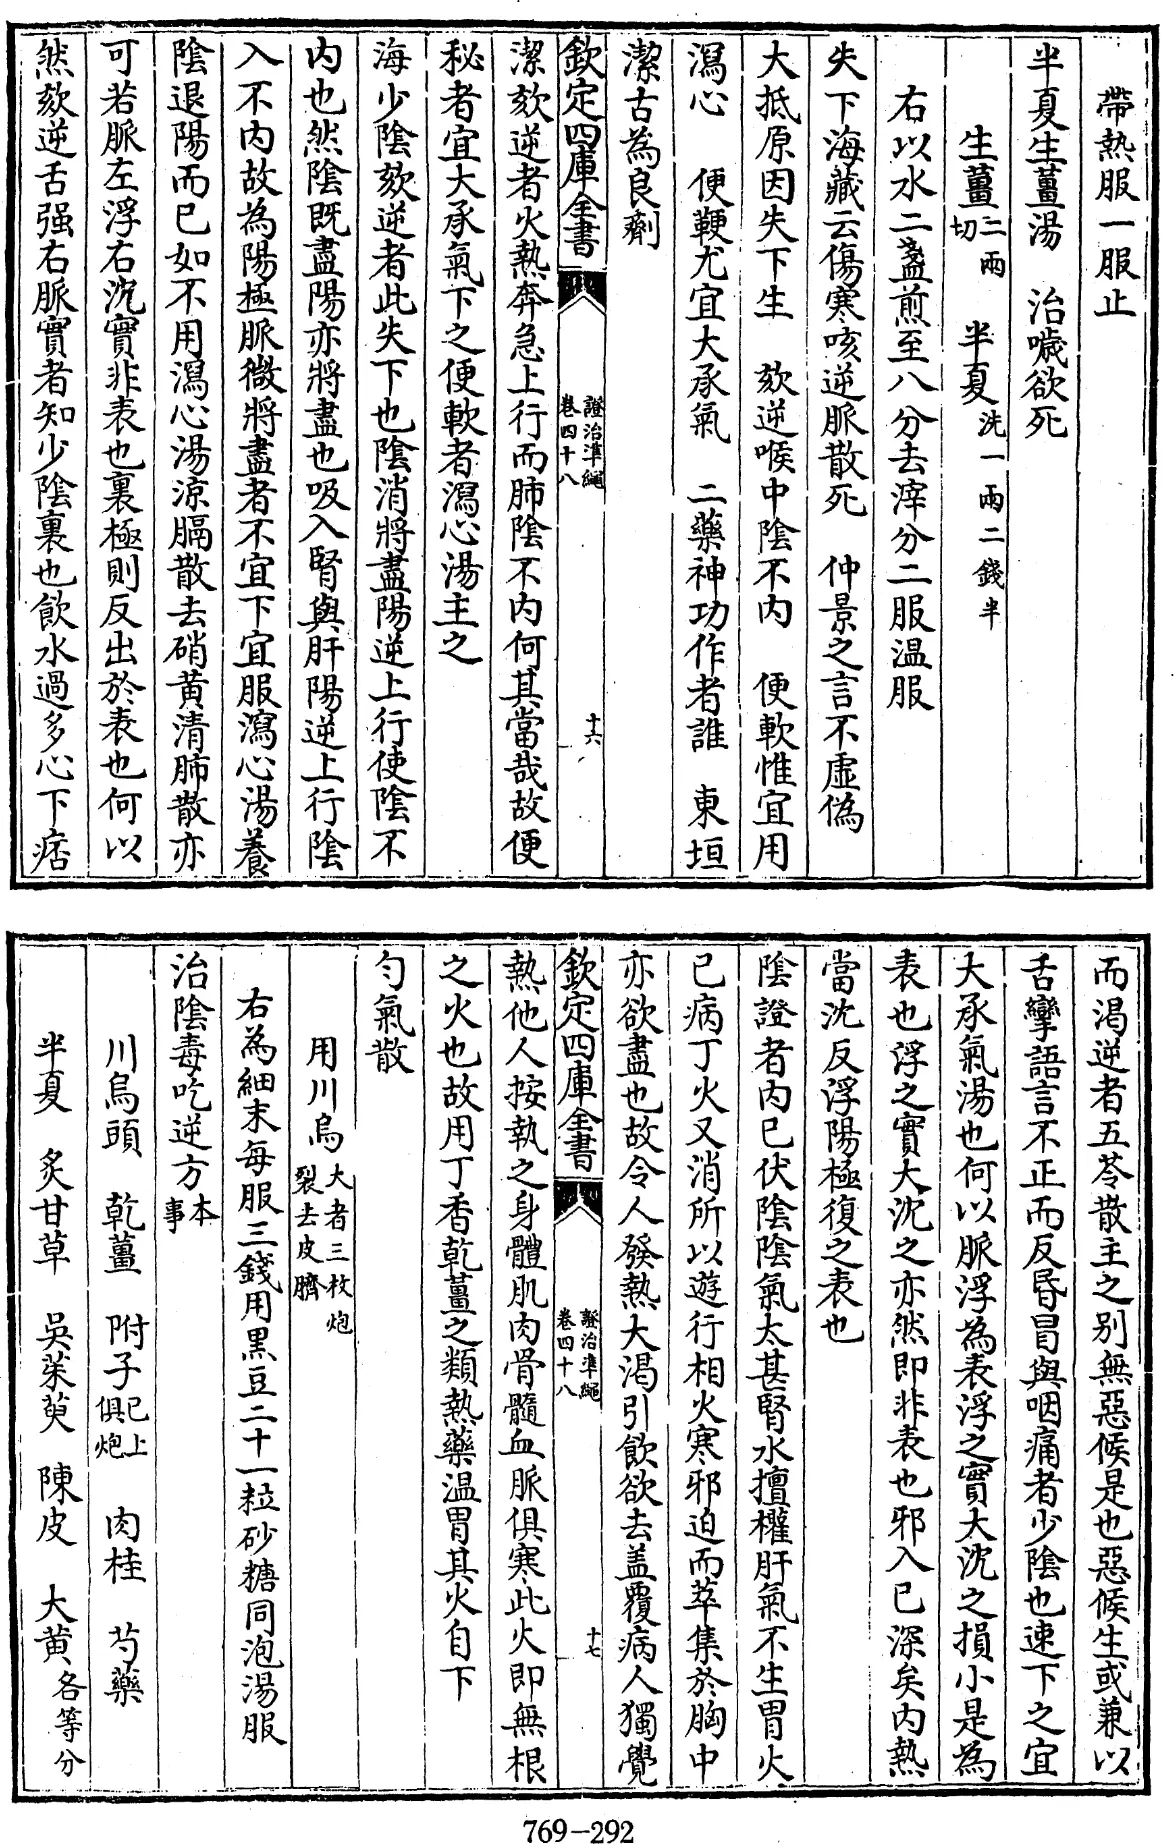 帶熱服一服止
半夏生薑湯　治噦欲死
生薑二兩切　半夏洗一兩二錢半
右以水二盞煎至八分去滓分二服温服
失下海藏云傷寒咳逆脈散死　仲景之言不虛偽
大抵原因失下生　欬逆喉中陰不内　便軟惟宜用
瀉心　便鞕尤宜大承氣　二藥神功作者誰　東垣
潔古為良劑
欽定四庫全書　證治準繩卷四十八　十六
潔欬逆者火熱奔急上行而肺陰不内何其當哉故便
秘者宜大承氣下之便軟者瀉心湯主之
海少陰欬逆者此失下也陰消將盡陽逆上行使陰不
内也然陰既盡陽亦將盡也吸入腎與肝陽逆上行陰
入不内故為陽極脈微將盡者不宜下宜服瀉心湯養
陰退陽而已如不用瀉心湯凉膈散去硝黄清肺散亦
可若脈左浮右沉實非表也裏極則反出於表也何以
然欬逆舌强右脈實者知少陰裏也飲水過多心下痞
而渴逆者五苓散主之别無惡候是也惡候生或兼以
舌攣語言不正而反昏冒與咽痛者少陰也速下之宜
大承氣湯也何以脈浮為表浮之實大沈之損小是為
表也浮之實大沈之亦然即非表也邪入已深矣内熱
當沈反浮陽極復之表也
陰證者内已伏陰陰氣太甚腎水擅權肝氣不生胃火
已病丁火又消所以遊行相火寒邪迫而萃集於胸中
亦欲盡也故令人發熱大渴引飲欲去盖覆病人獨覺
欽定四庫全書　證治準繩卷四十八　十七
熱他人按執之身體肌肉骨髓血脈俱寒此火即無根
之火也故用丁香乾薑之類熱藥温胃其火自下
匀氣散
用川烏大者三枚炮裂去皮臍
右為細末每服三錢用黑豆二十一粒砂糖同泡湯服
治陰毒吃逆方本事
川烏頭　乾薑　附子已上俱炮　肉桂　芍藥
半夏　炙甘草　吳茱萸　陳皮　大黄各等分
769-292